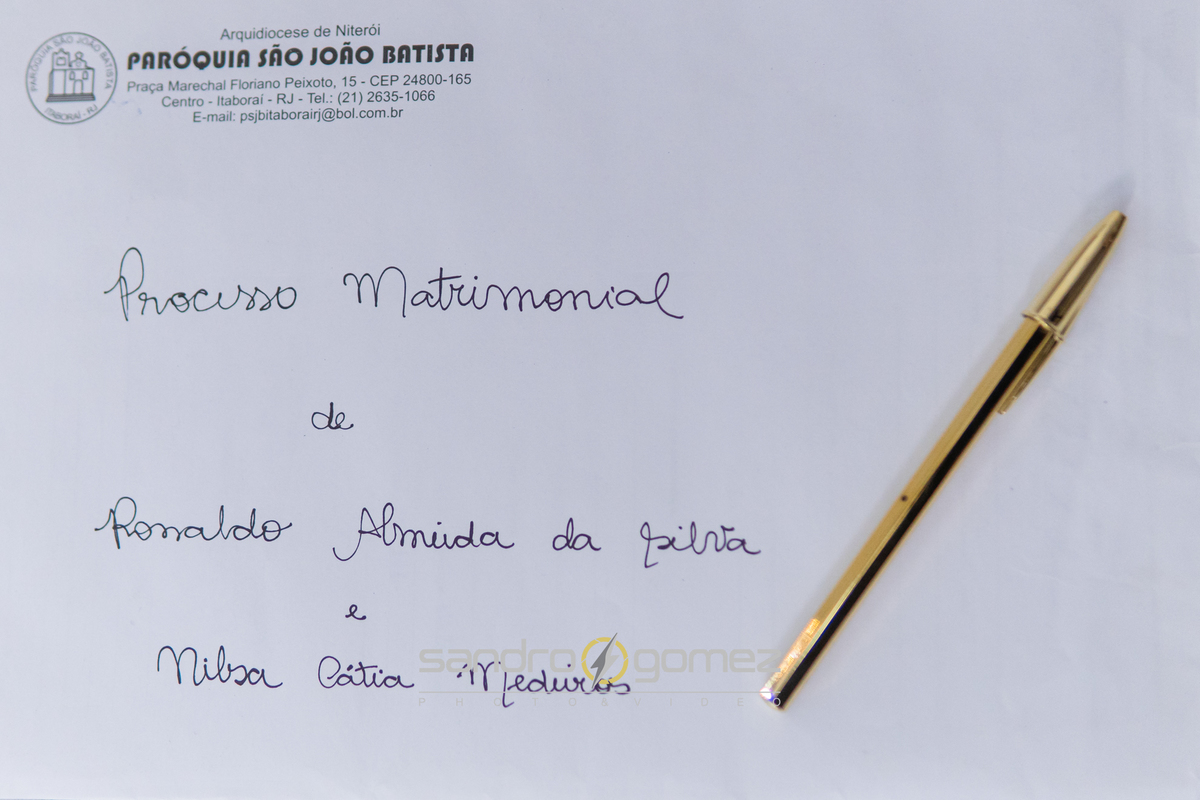 Arquidiocese de Niterói
PARÓQUIA SÃO JOÃO BATISTA
Praça Marechal Floriano Peixoto, 15 - CEP 24800-165
Centro - Itaboraí - RJ - Tel.: (21) 2635-1066
E-mail: psjbitaborairj@bol.com.br
PARÓQUIA SÃO JOÃO BATISTA
ITABORAÍ - RJ
Processo Matrimonial
de
Ronaldo Almeida da Silva
e
Nilsa Cátia Medeiros
sandro gomez
PHOTO & VIDE